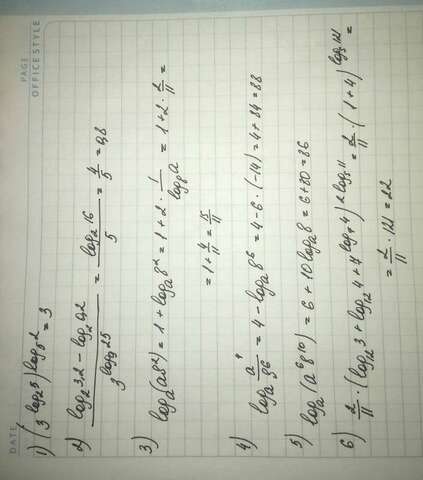 PAGE
OFFICESTYLE
DATE
1) (3^log₂5)^log₅2 = 3
2) (log₂3,2 - log₂0,2) / 3^log₉25 = log₂16 / 5 = 4/5 = 0,8
3) logₐ(ab²) = 1 + logₐb² = 1 + 2 · 1/log_b a = 1 + 2 · 2/11 =
= 1 + 4/11 = 15/11
4) logₐ a⁴/b⁶ = 4 - logₐb⁶ = 4 - 6 · (-14) = 4 + 84 = 88
5) logₐ(a⁶b¹⁰) = 6 + 10logₐb = 6 + 80 = 86
6) 2/11 · (log₁₂3 + log₁₂4 + 4^log₇4)^2log₅11 = 2/11 · (1 + 4)^log₅121 =
= 2/11 · 121 = 22